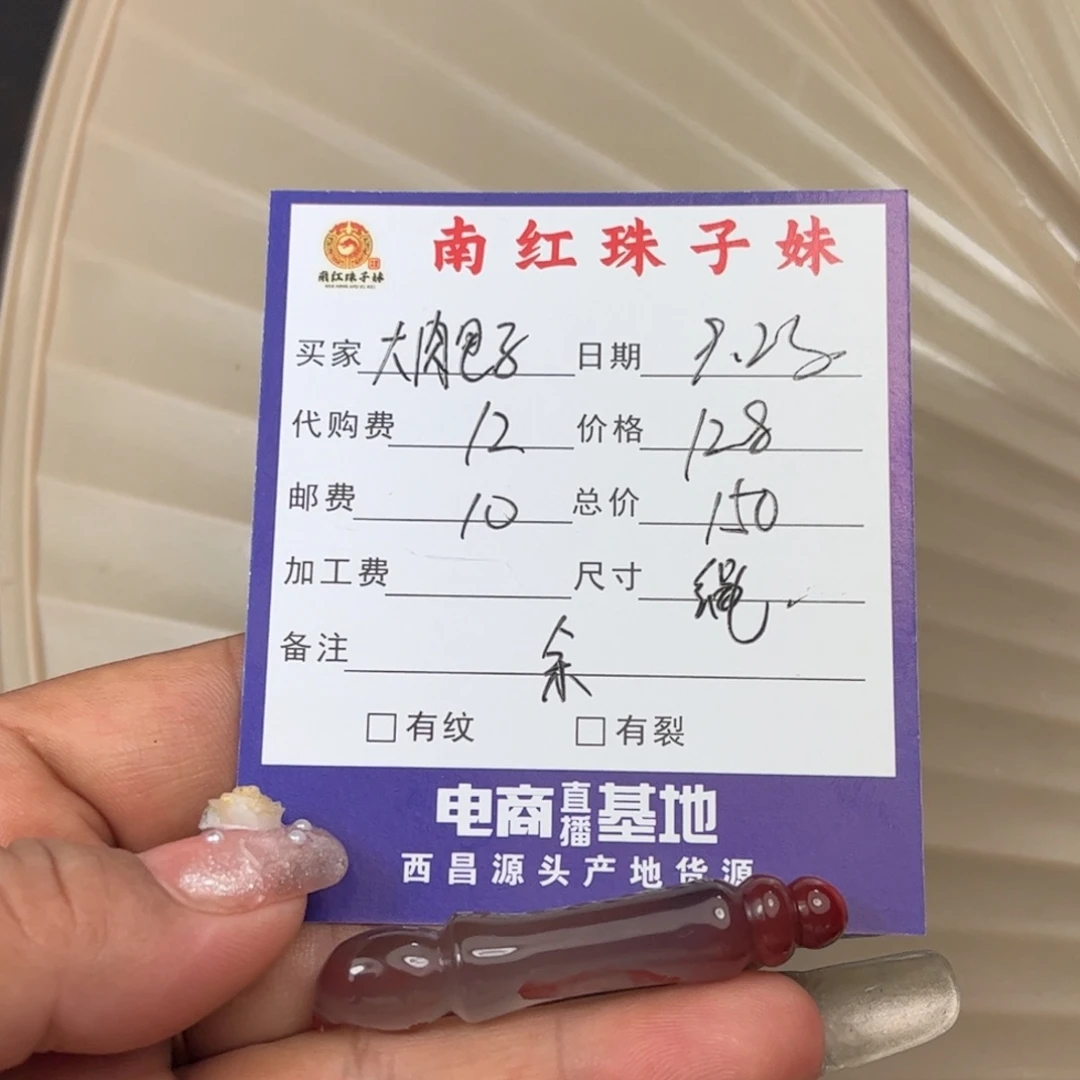 南红珠子妹
南红珠子妹
买家 大肉包子 日期 9.25
代购费 12 价格 128
邮费 10 总价 150
加工费 尺寸 绳
备注 余
□有纹 □有裂
电商直播基地
西昌源头产地货源